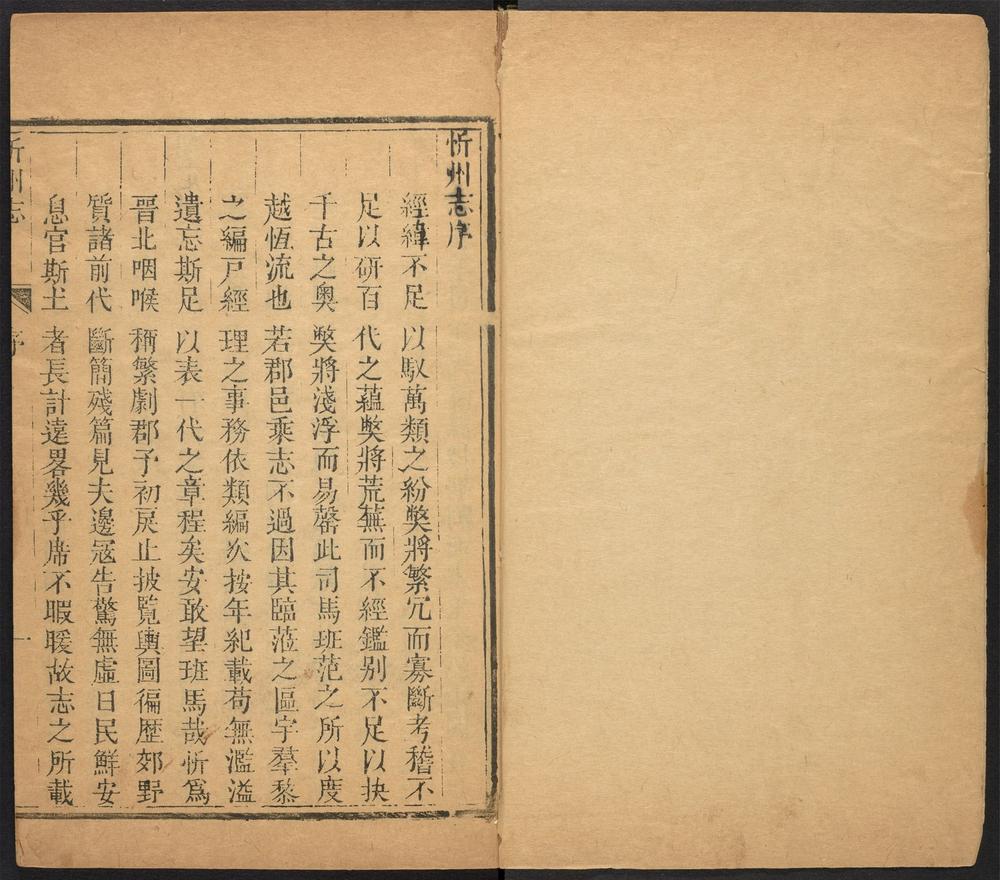 忻州志序
經緯不足以馭萬類之紛獘將繁冗而寡斷考稽不
足以研百代之蘊獘將荒蕪而不經鑑別不足以抉
千古之奧獘將淺浮而易罄此司馬班范之所以度
越恆流也若郡邑乘志不過因其臨蒞之區宇羣黎
之編戸經理之事務依類編次按年紀載苟無濫溢
遺忘斯足以表一代之章程矣安敢望班馬哉忻爲
晉北咽喉稱繁劇郡予初戾止披覽輿圖徧歷郊野
質諸前代斷簡殘篇見夫邊寇告驚無虛日民鮮安
息官斯土者長計遠畧幾乎席不暇暖故志之所載
忻州志 序 一